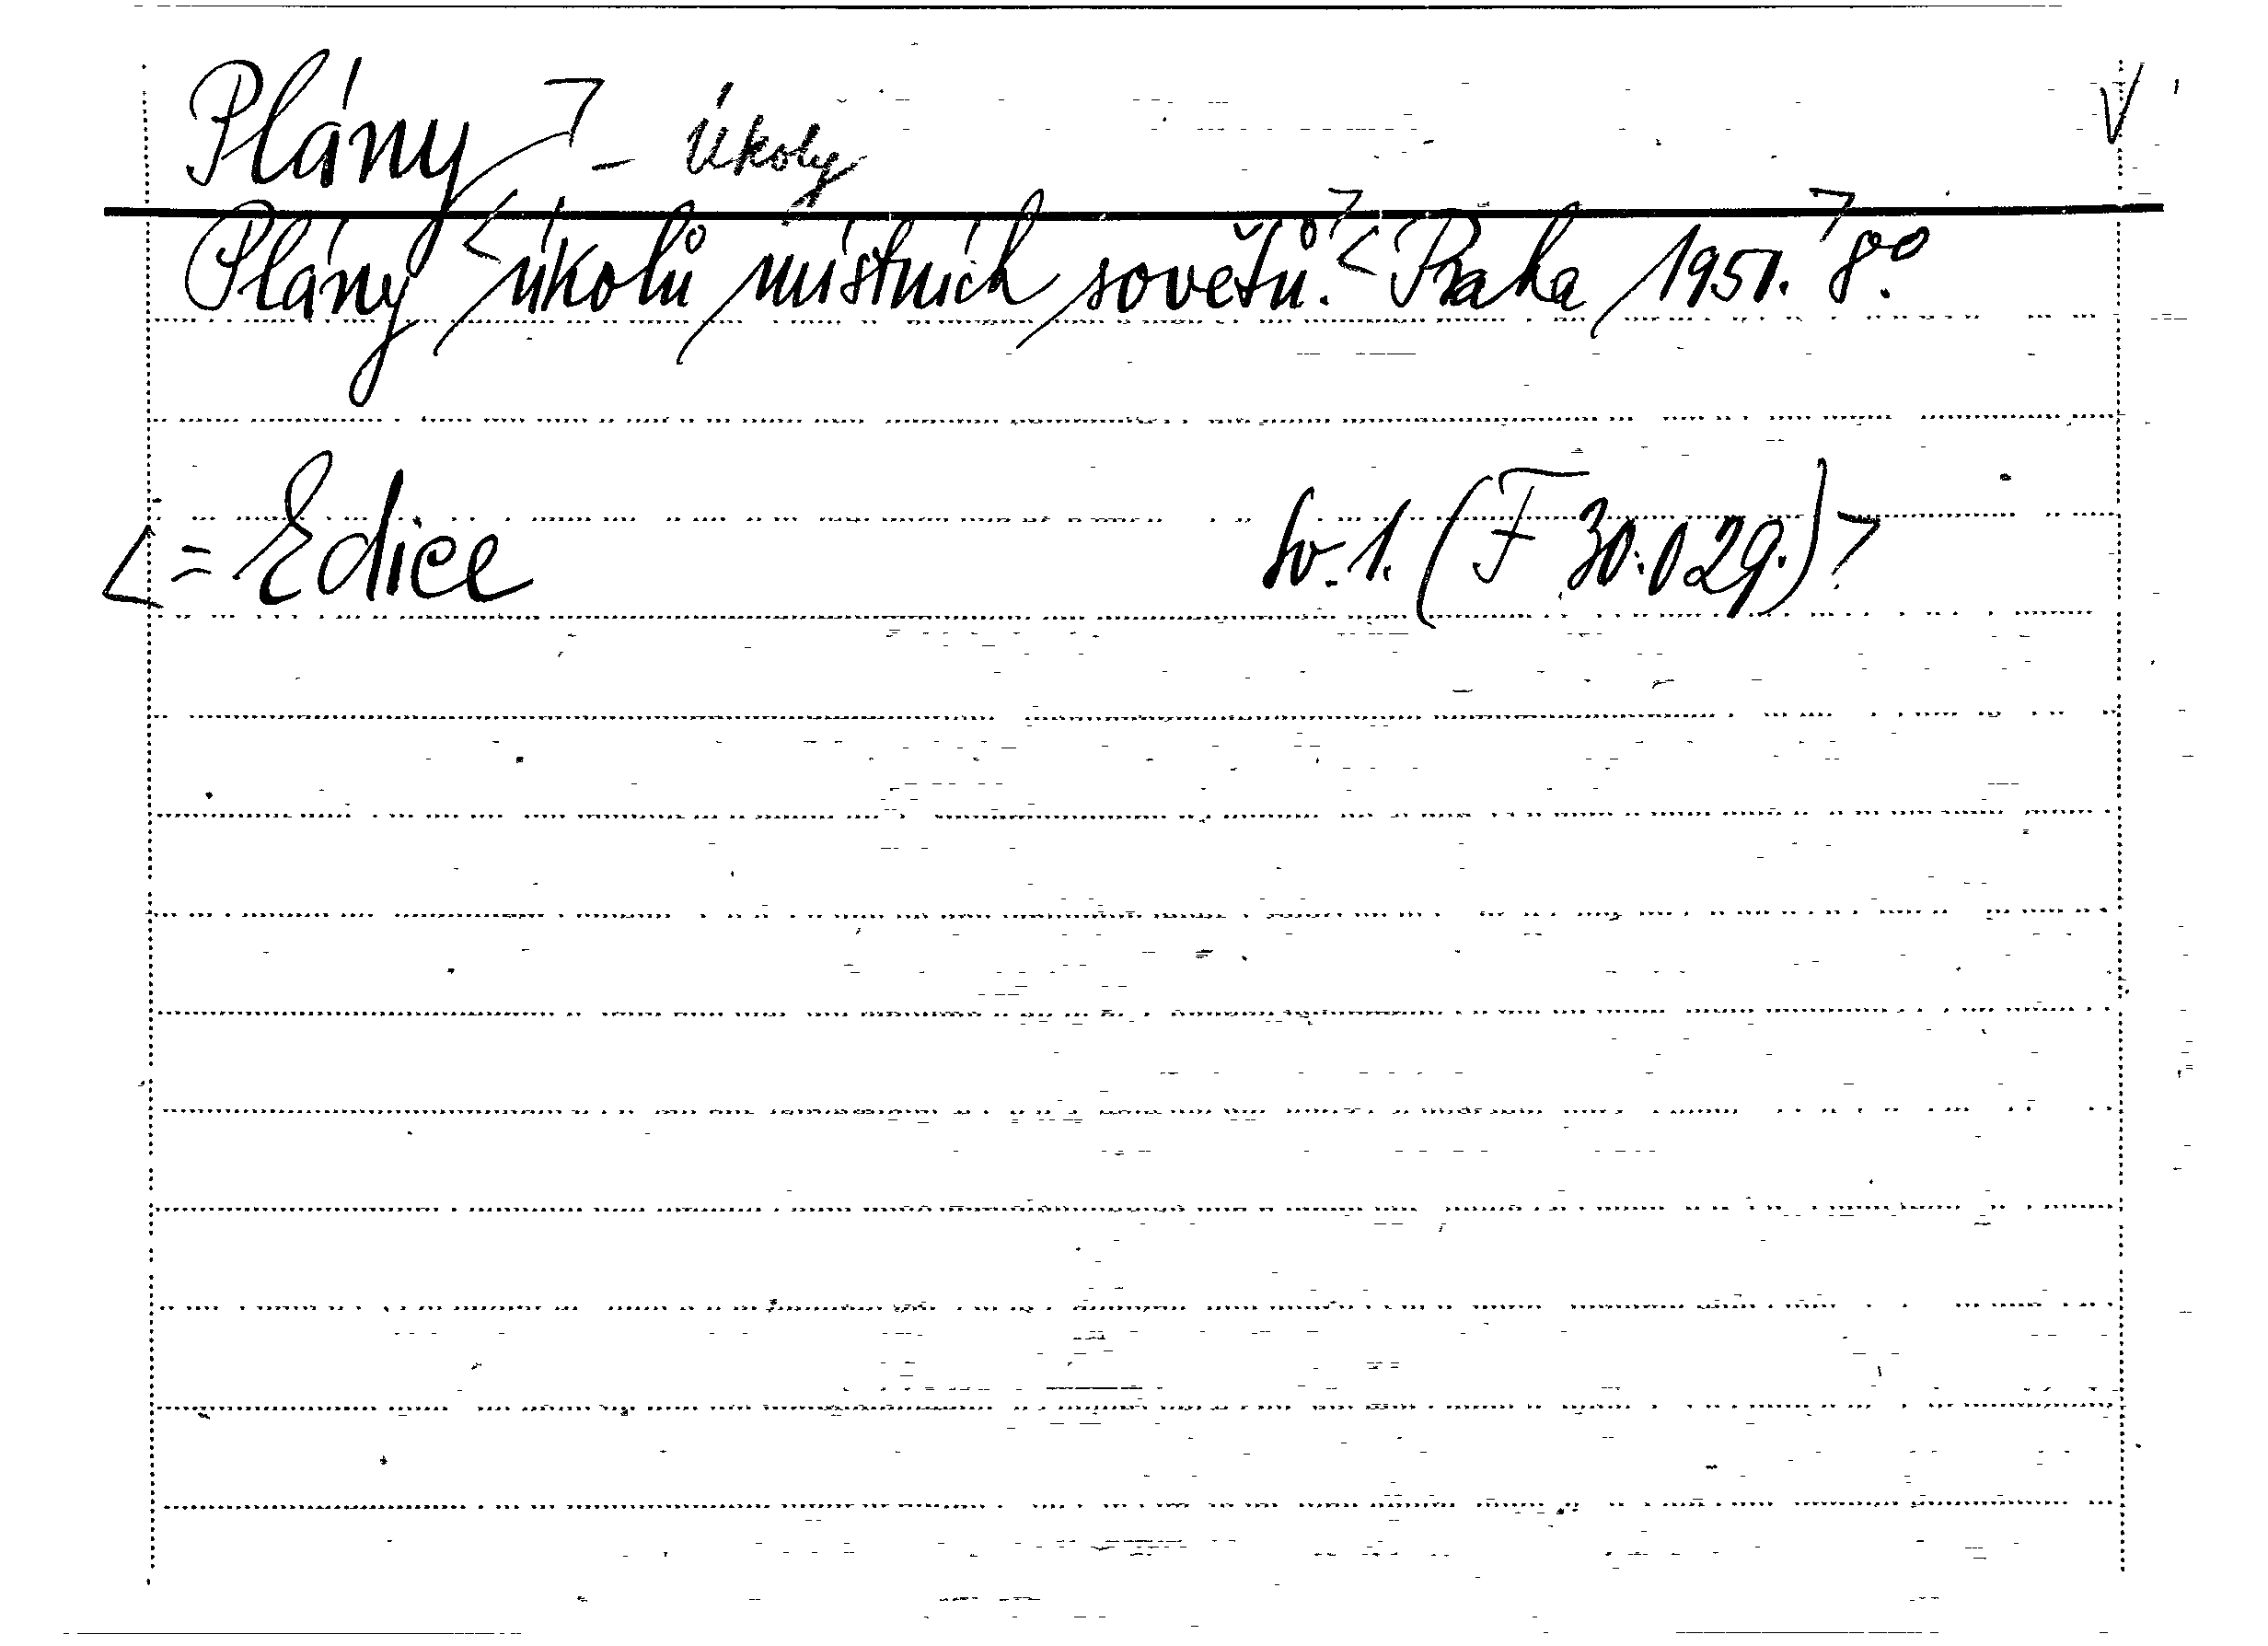 Plány ⌐ - úkoly V
Plány < úkolů místních sovětů. ⌐ < Praha 1951. ⌐ 8°.
< = Edice Sv. 1. (F 30.029.) >